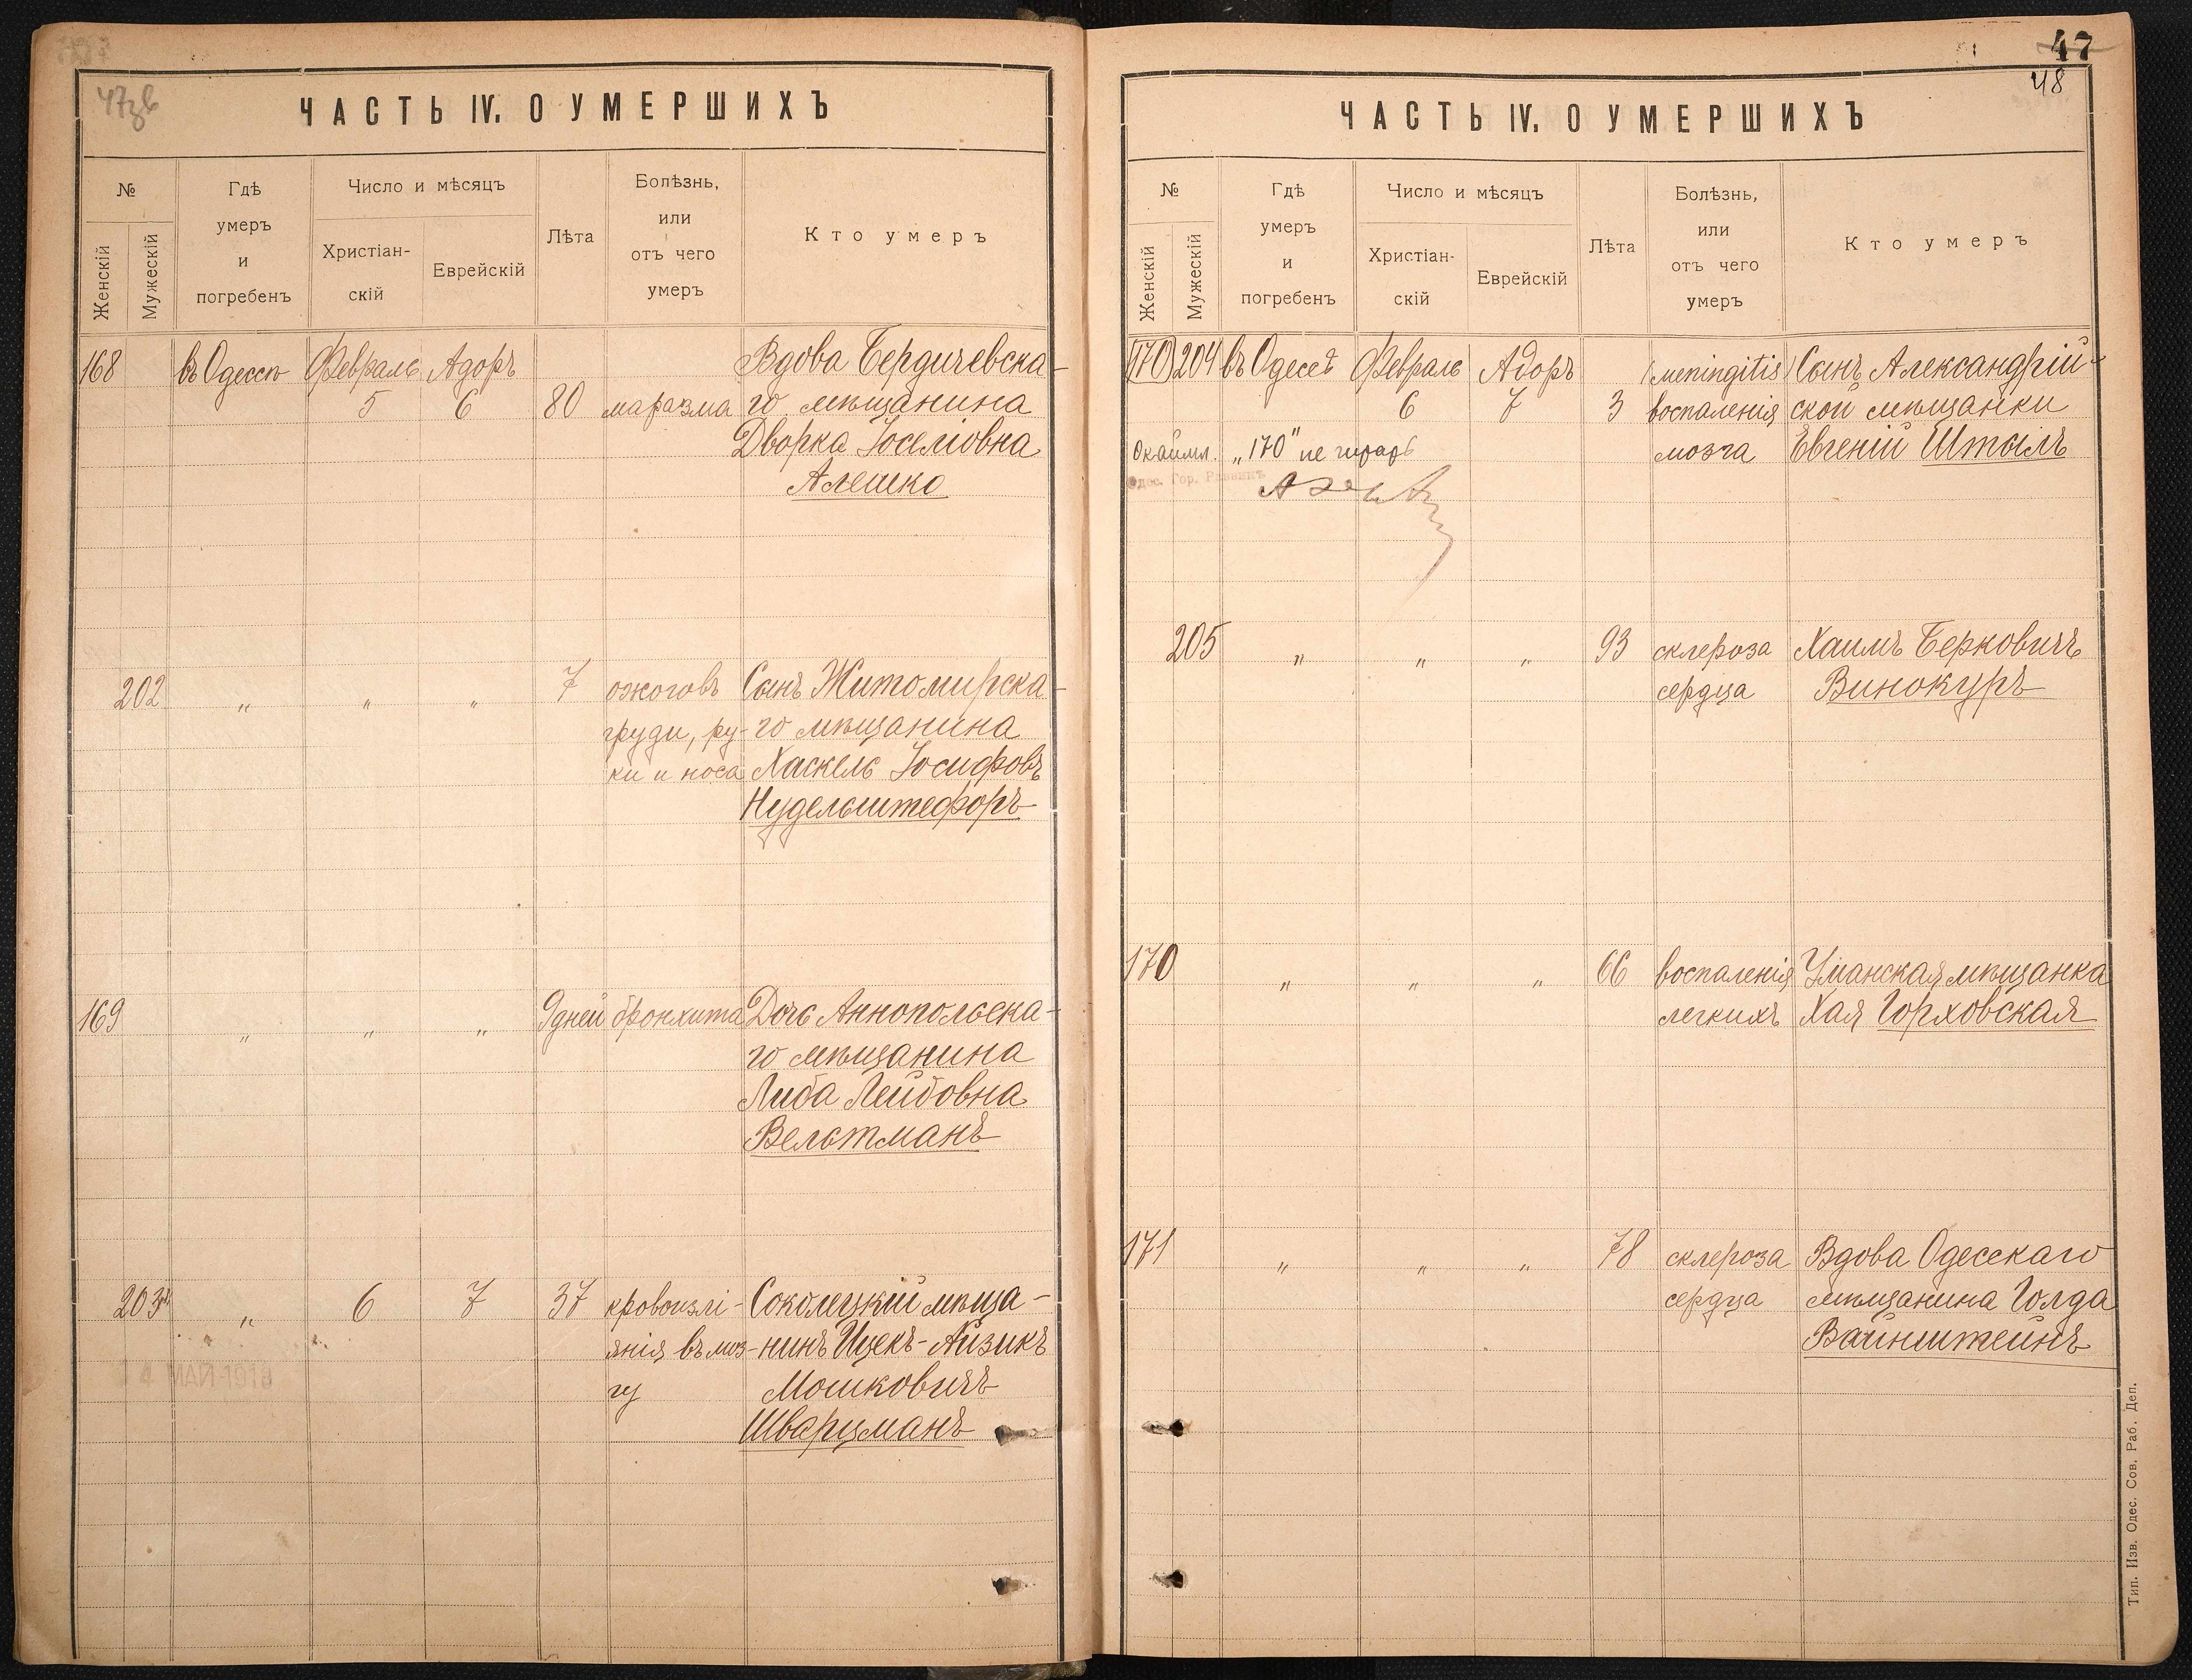 47зв
ЧАСТЬ IV. О УМЕРШИХЪ
№
Женскій
Мужескій
Гдѣ
умеръ
и
погребенъ
Число и мѣсяцъ
Христіан-
скій
Еврейскій
Лѣта
Болѣзнь,
или
отъ чего
умеръ
Кто умеръ
168 въ Одессѣ Февраль Адоръ Вдова Бердичевска-
5 6 80 маразма го мѣщанина
Дворка Іоселіовна
Алешко
202 " " " 7 ожоговъ Сынъ Житомирска-
груди, ру- го мѣщанина
ки и носа Хаскель Іосифовъ
Нудельштефоръ
169 " " " 9 дней бронхита Дочь Аннопольска-
го мѣщанина
Либа Лейбовна
Вельтманъ
203 " 6 7 37 кровоизлі- Соколецкій мѣща-
янія въ моз- нинъ Ицекъ-Айзикъ
гу Мошковичъ
Шварцманъ
4 МАЙ 1918
47
48
ЧАСТЬ IV. О УМЕРШИХЪ
№
Женскій
Мужескій
Гдѣ
умеръ
и
погребенъ
Число и мѣсяцъ
Христіан-
скій
Еврейскій
Лѣта
Болѣзнь,
или
отъ чего
умеръ
Кто умеръ
170 204 въ Одессѣ Февраль Адоръ (meningitis) Сынъ Александрій-
6 7 3 воспаленія ской мѣщанки
Окаймл. „170" не читать мозга Евгеній Штыль
Одес. Гор. Раввинъ
205 " " " 93 склероза Хаимъ Берковичъ
сердца Винокуръ
170 " " " 66 воспаленія Уманская мѣщанка
легкихъ Хая Горховская
171 " " " 78 склероза Вдова Одесскаго
сердца мѣщанина Голда
Вайнштейнъ
Тип. Изв. Одес. Сов. Раб. Деп.